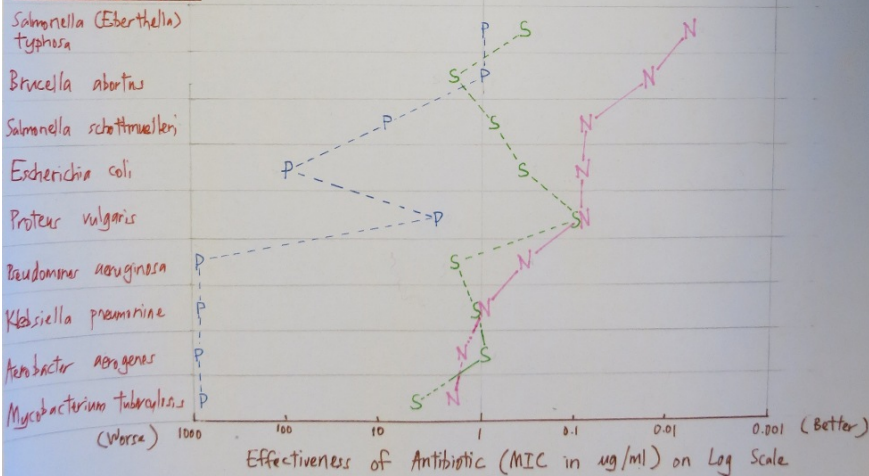 Salmonella (Eberthella)
typhosa
P
S
N
Brucella abortus
S
P
N
Salmonella schottmuelleri
P
S
N
Escherichia coli
P
S
N
Proteus vulgaris
P
S
N
Pseudomonas aeruginosa
P
S
N
Klebsiella pneumonine
P
S
N
Aerobacter aerogenes
P
N
S
Mycobacterium tuberculosis
P
S
N
(Worse) 1000 100 10 1 0.1 0.01 0.001 (Better)
Effectiveness of Antibiotic (MIC in ug/ml) on Log Scale